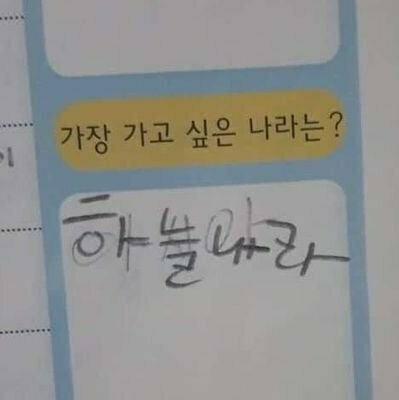 가장 가고 싶은 나라는?
하늘나라